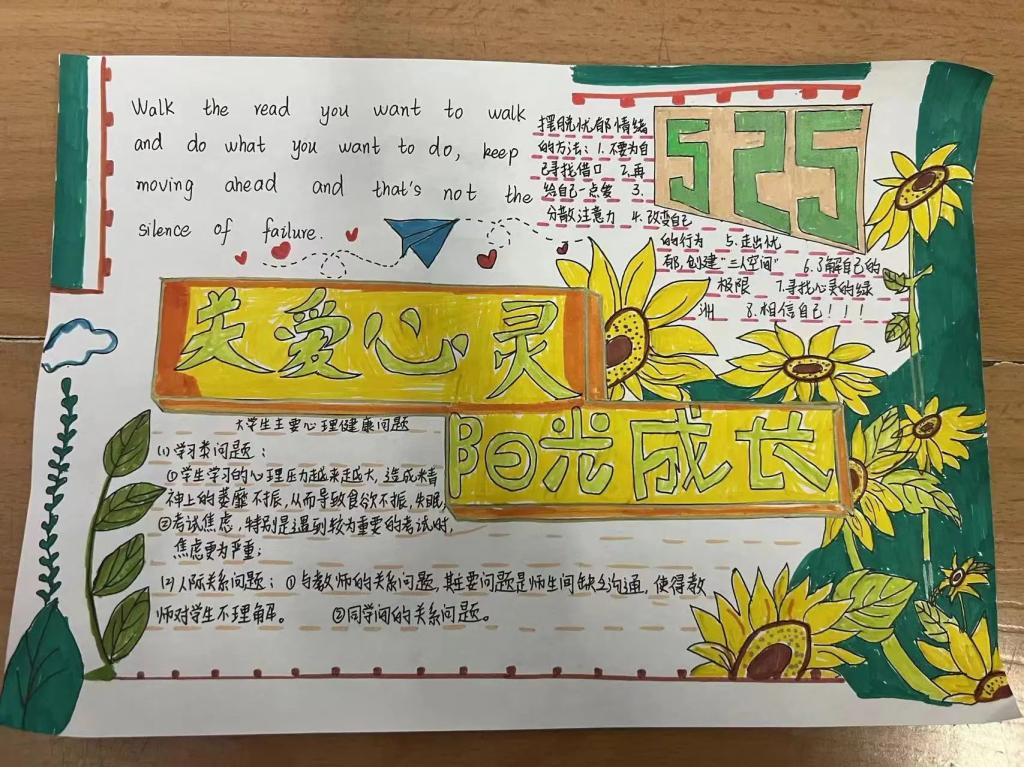 Walk the read you want to walk
and do what you want to do, keep
moving ahead and that's not the
silence of failure.
525
摆脱忧郁情绪
的方法：1.不要为自
己寻找借口 2.再
给自己一点爱 3.
分散注意力 4.改变自己
的行为 5.走出忧
郁，创建"三人空间" 6.了解自己的
极限 7.寻找心灵的绿
洲 8.相信自己！！！
关爱心灵
阳光成长
大学生主要心理健康问题
(1)学习类问题：
①学生学习的心理压力越来越大，造成精
神上的萎靡不振，从而导致食欲不振，失眠，
②考试焦虑，特别是遇到较为重要的考试时，
焦虑更为严重；
(2)人际关系问题：①与教师的关系问题，其主要问题是师生间缺乏沟通，使得教
师对学生不理解。 ②同学间的关系问题。